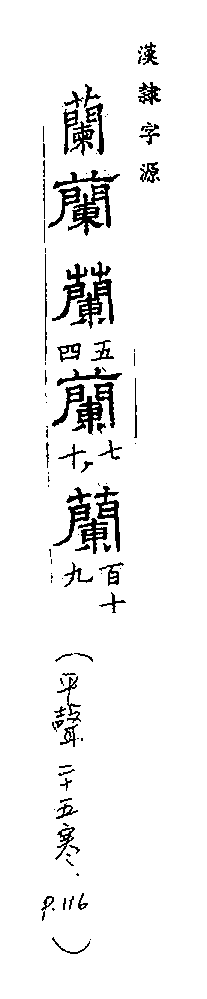 漢隸字源
蘭蘭蘭五四蘭七十蘭百十九(平聲二十五寒、P.116)